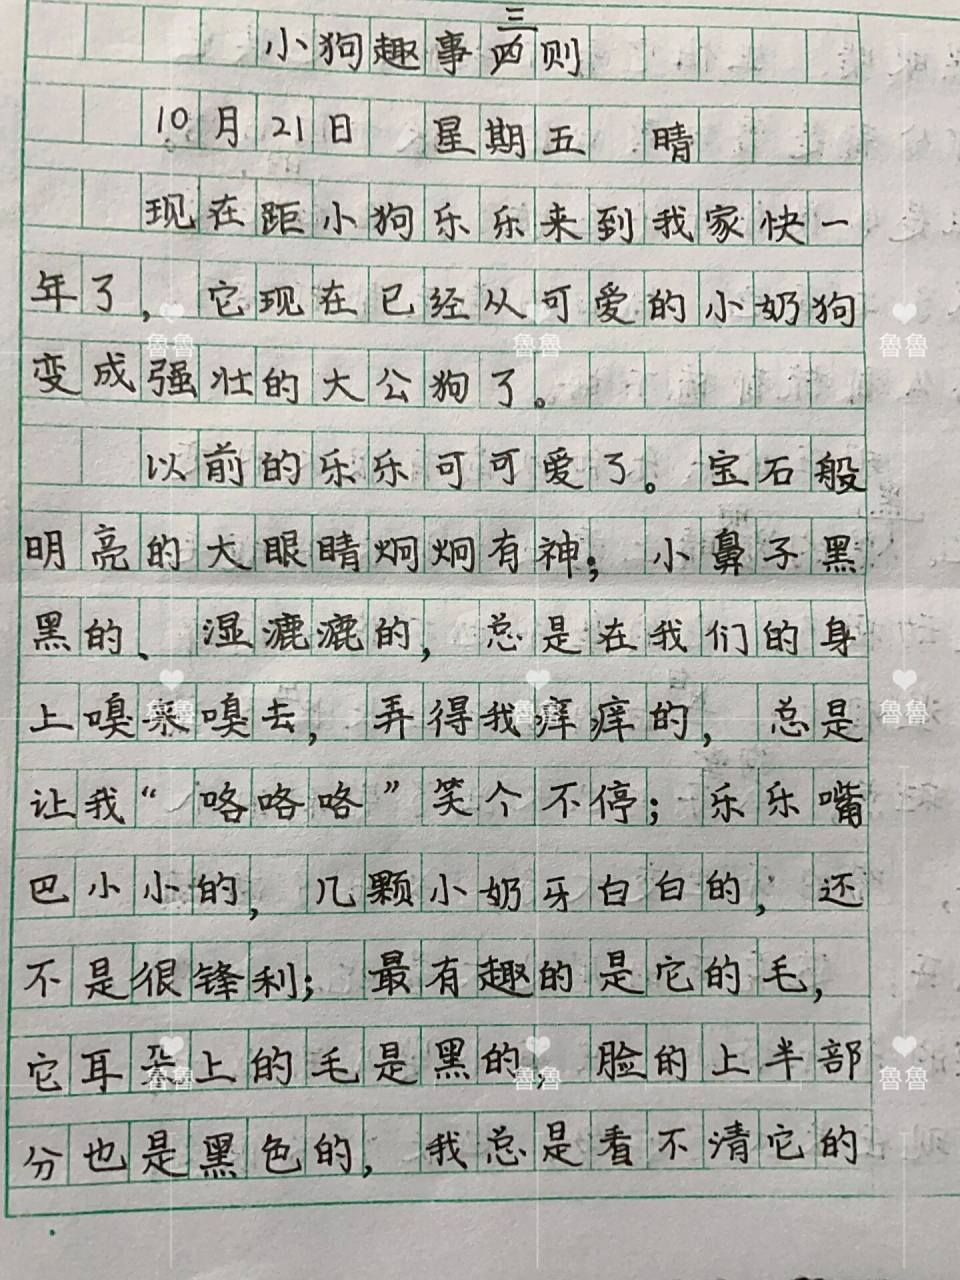 小狗趣事三则
10月21日 星期五 晴
现在距小狗乐乐来到我家快一
年了，它现在已经从可爱的小奶狗
变成强壮的大公狗了。
以前的乐乐可可爱了。宝石般
明亮的大眼睛炯炯有神；小鼻子黑
黑的、湿漉漉的，总是在我们的身
上嗅来嗅去，弄得我痒痒的，总是
让我“咯咯咯”笑个不停；乐乐嘴
巴小小的，几颗小奶牙白白的，还
不是很锋利；最有趣的是它的毛，
它耳朵上的毛是黑的，脸的上半部
分也是黑色的，我总是看不清它的
魯魯 魯魯 魯魯
魯魯 魯魯 魯魯
魯魯 魯魯 魯魯